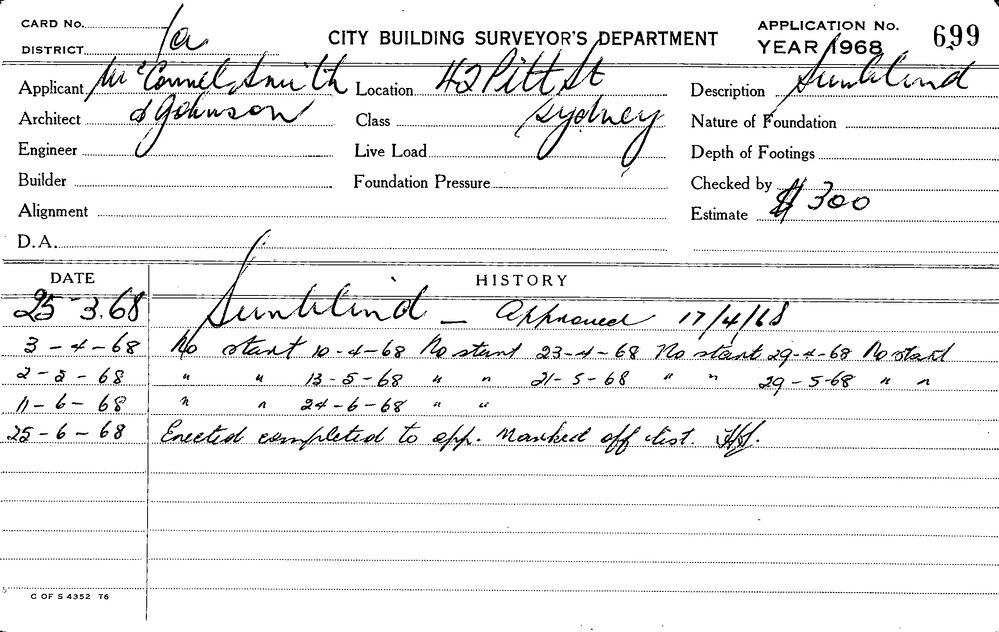 CARD No. CITY BUILDING SURVEYOR'S DEPARTMENT APPLICATION No. 699
DISTRICT 1a YEAR 1968
Applicant McConnel, Smith Location 42 Pitt St Description Sunblind
Architect & Johnson Class Sydney Nature of Foundation
Engineer Live Load Depth of Footings
Builder Foundation Pressure Checked by
Alignment Estimate $300
D.A.
DATE HISTORY
25-3.68 Sunblind — Approved 17/4/68
3-4-68 No start 10-4-68 No start 23-4-68 No start 29-4-68 No start
2-5-68 " " 13-5-68 " " 21-5-68 " " 29-5-68 " "
11-6-68 " " 24-6-68 " "
25-6-68 Erected completed to app. Marked off list.
C OF S 4352 T6